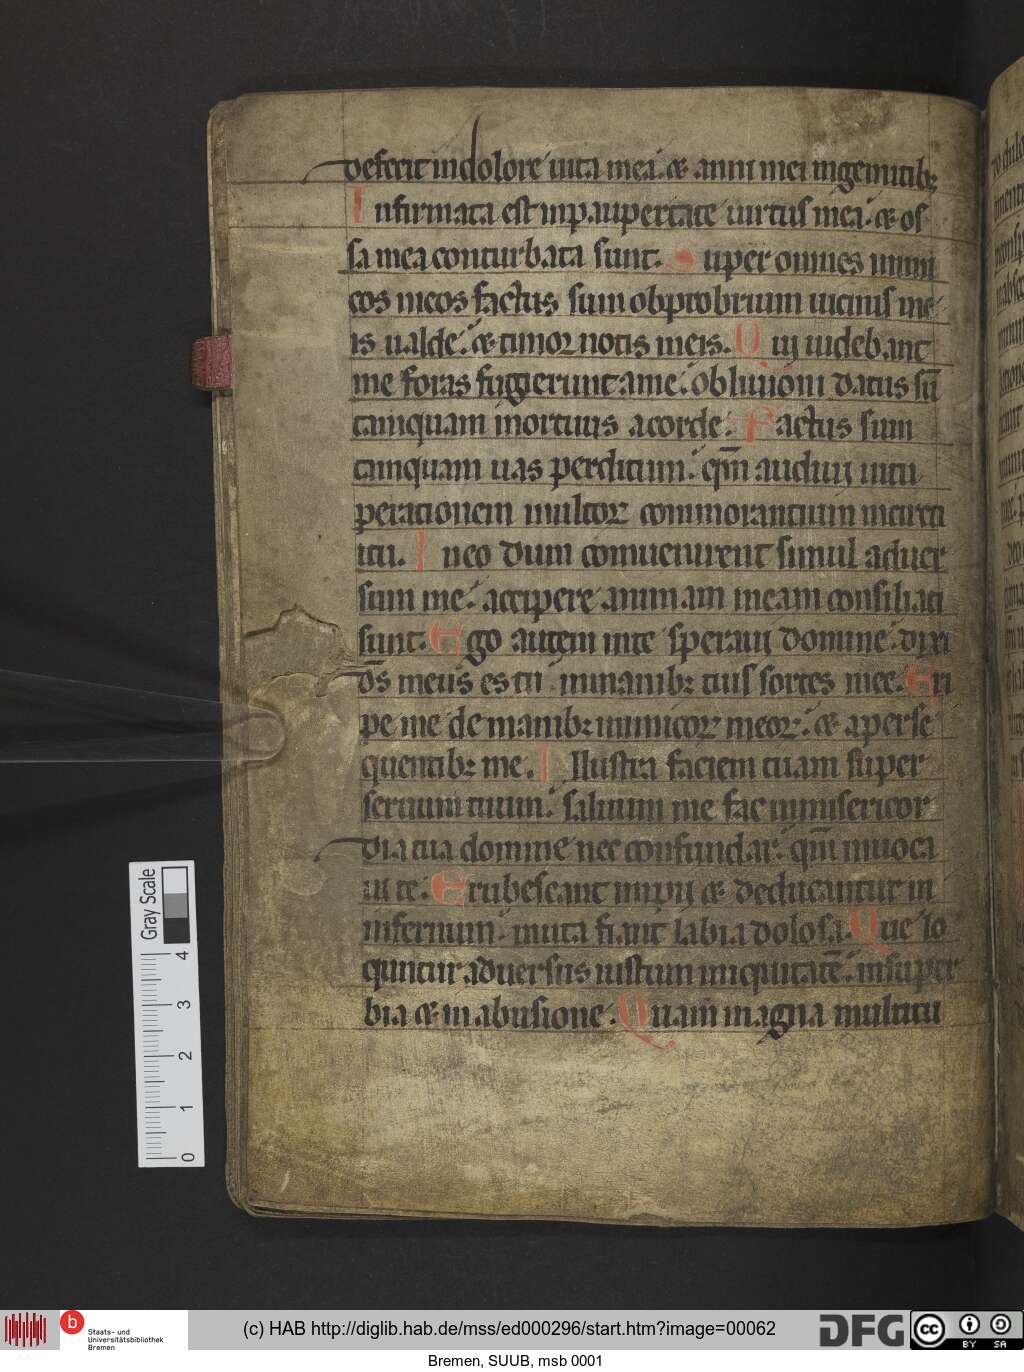 defecit in dolore uita mea. & anni mei ingemitib;
Infirmata est inpaupertate uirtus mea. & os
sa mea conturbata sunt. Super omnes inimi
cos meos factus sum obprobrium uicinis me
is ualde. & timor notis meis. Qui uidebant
me foras fugierunt ame. obliuioni datus sū
tanquam mortuus acorde. Factus sum
tanquam uas perditum. qm̄ audiui uitu
perationem multoꝝ commorantium incirci
itu. Ineo dum conuenirent simul aduer
sum me. accipere animam meam consiliati
sunt. Ego autem inte speraui domine. dixi
d̄s meus es tu. inmanib; tuis sortes mee. Eri
pe me de manib; inimicoꝝ meoꝝ. & aperse
quentib; me. Illustra faciem tuam super
seruum tuum. saluum me fac inmisericor
dia tua domine nec confundar. qm̄ inuoca
ui te. Erubescant impii & deducantur in
infernum. muta fiant labia dolosa. Que lo
quntur aduersus iustum iniquitatē. insuper
bia & in abusione. Quam magna multitu
Gray Scale
4
3
2
1
0
b
Staats- und
Universitätsbibliothek
Bremen
(c) HAB http://diglib.hab.de/mss/ed000296/start.htm?image=00062
DFG
cc
BY SA
Bremen, SUUB, msb 0001